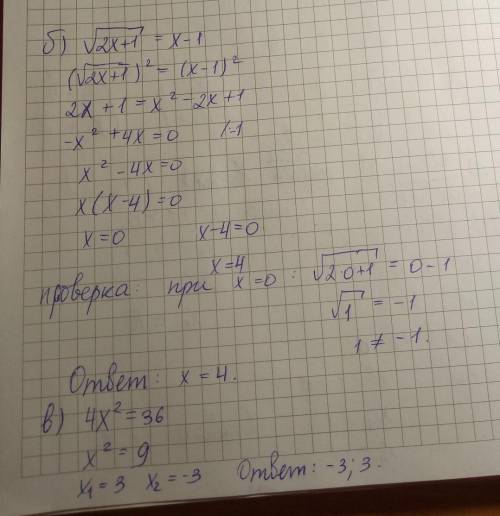 б) √(2x+1) = x-1
(√(2x+1))² = (x-1)²
2x + 1 = x² - 2x+1
-x² + 4x = 0 /·-1
x² - 4x = 0
x(x-4) = 0
x = 0 x-4=0
x=4
проверка: при x=0 : √(2·0+1) = 0-1
√1 = -1
1 ≠ -1.
Ответ: x = 4.
в) 4x² = 36
x² = 9
x₁ = 3 x₂ = -3 Ответ: -3; 3.